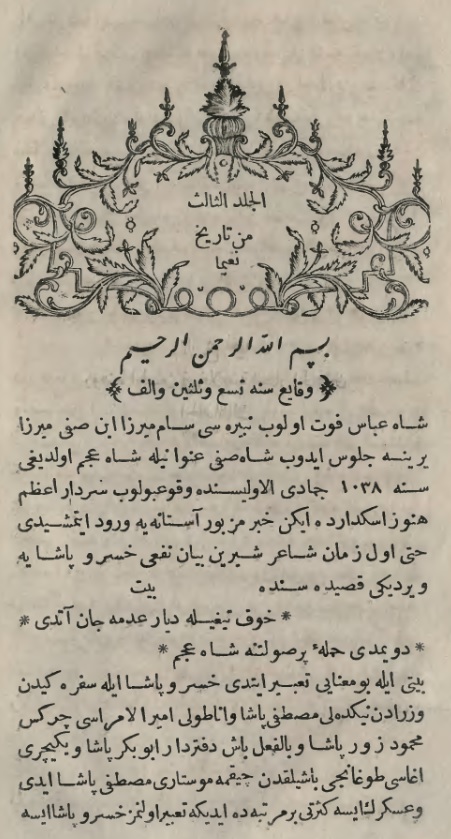 الجلد الثالث
من تاريخ
نعيما
بسم الله الرحمن الرحيم
﴿ وقايع سنه تسع وثلثين والف ﴾
شاه عباس فوت اولوب نبيره سى سام ميرزا ابن صفى ميرزا
يرينه جلوس ايدوب شاه صفى عنوانيله شاه عجم اولديغى
سنه ١٠٣٨ جمادى الاوليسنده وقوعبولوب سردار اعظم
هنوز اسكدارده ايكن خبر مزبور آستانه يه ورود ايتمشيدى
حتى اول زمان شاعر شيرين بيان نفعى خسرو پاشا يه
ويرديكى قصيده سنده بيت
* خوف تيغيله ديار عدمه جان آتدى *
* دويمدى حملهٔ پرصولتنه شاه عجم *
بيتى ايله بومعنايى تعبير ايتدى خسرو پاشا ايله سفره كيدن
وزرادن نيكده لى مصطفى پاشا واناطولى امير الامراسى چركس
محمود زور پاشا وبالفعل باش دفتردار ابوبكر پاشا ويكيچرى
اغاسى طوغانجى باشيلقدن چيقمه موستارى مصطفى پاشا ايدى
وعسكرك ايسه كثرتى بر مرتبه ده ايديكه تعبير اولنمز خسرو پاشا ايسه